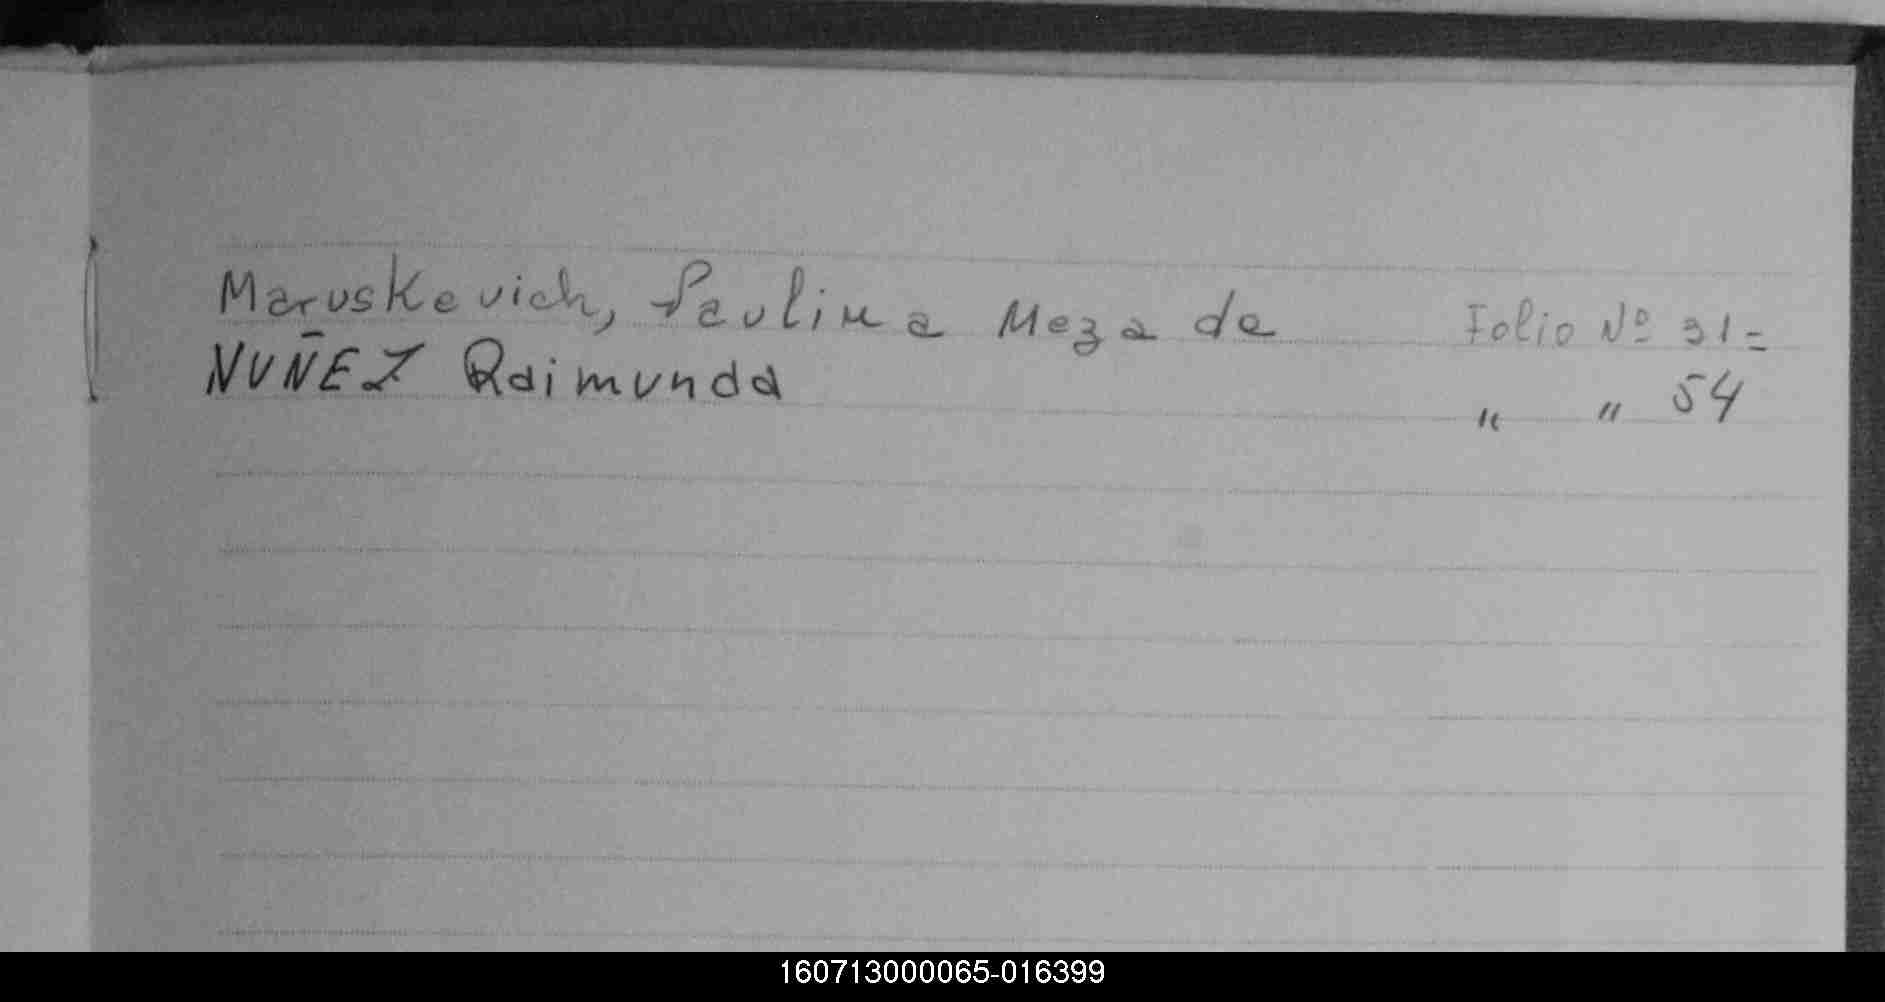 Maruskevich, Paulina Meza de Folio Nº 31=
NUÑEZ Raimunda " " 54
160713000065-016399